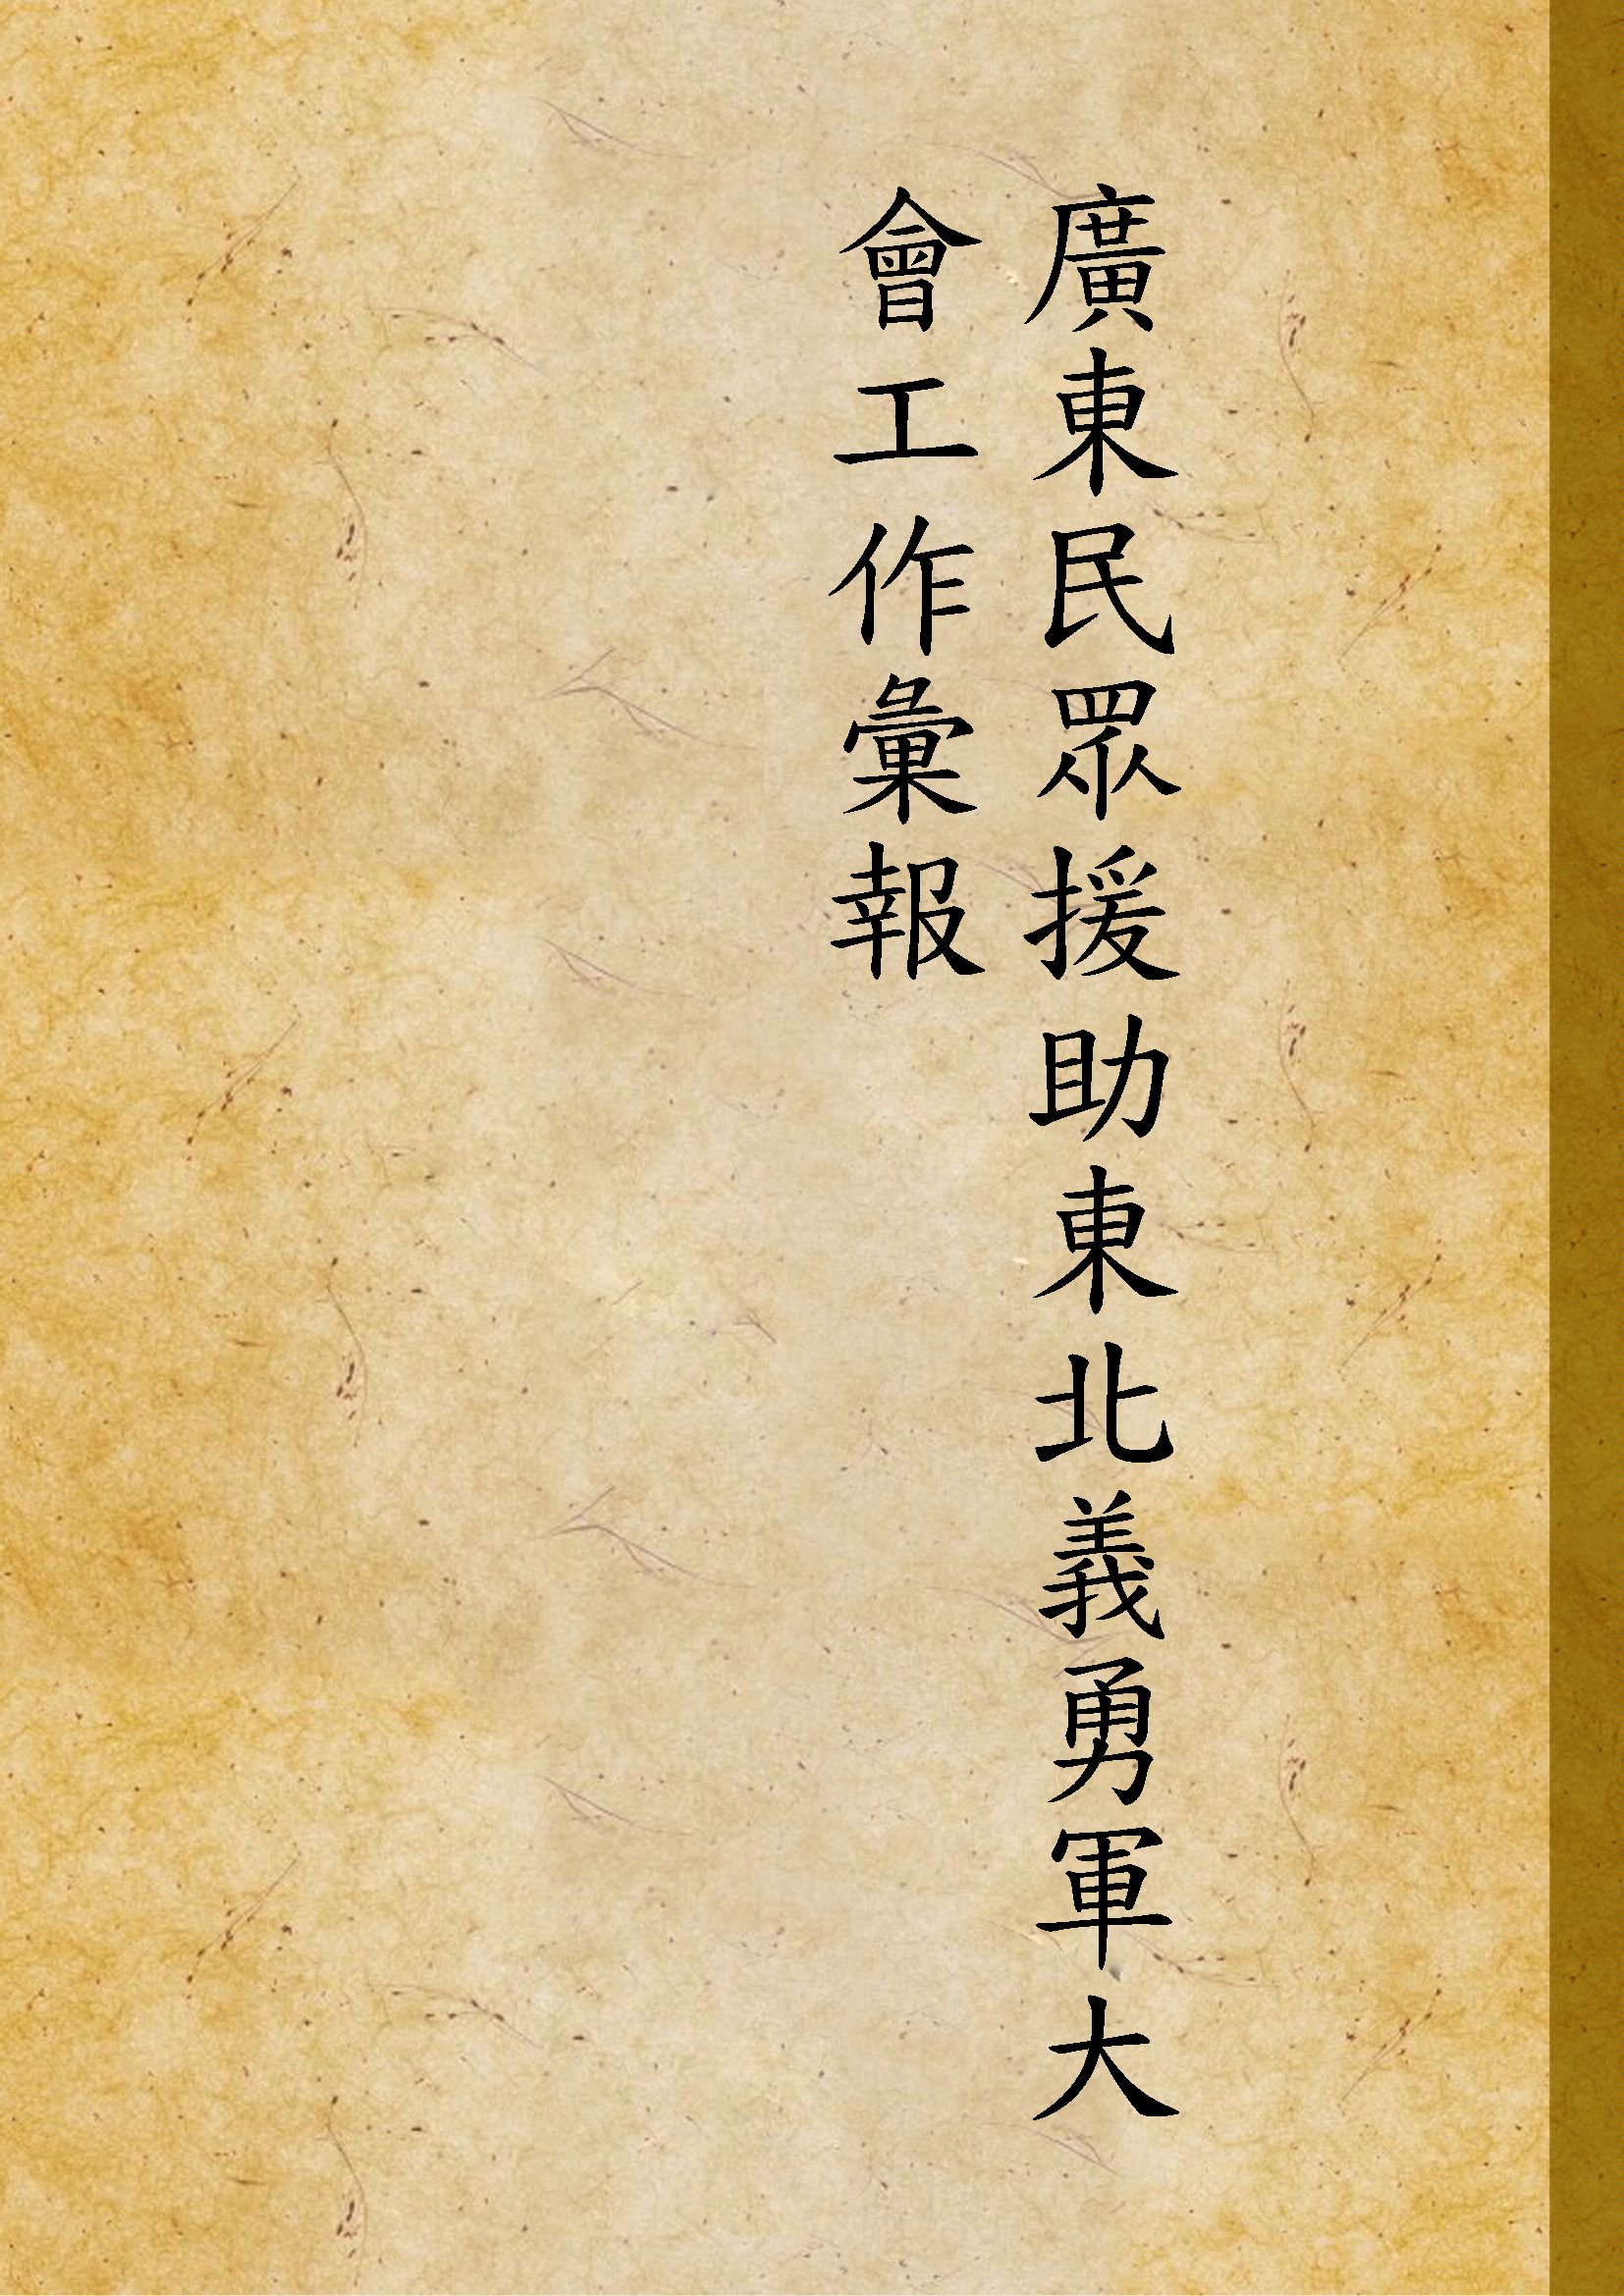 廣東民眾援助東北義勇軍大
會工作彙報